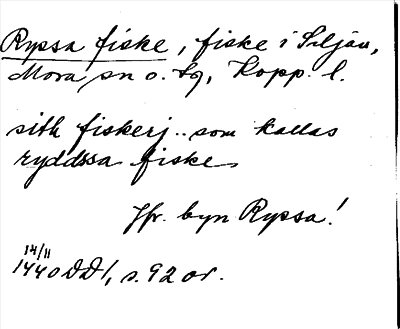 Ryssa fiske, fiske i Siljan,
Mora sn o. tg, Kopp. l.
sith fiskerj .. som kallas
ryddssa fiske
Jfr. byn Ryssa!
14/11
1440 DD1, s. 92 or.